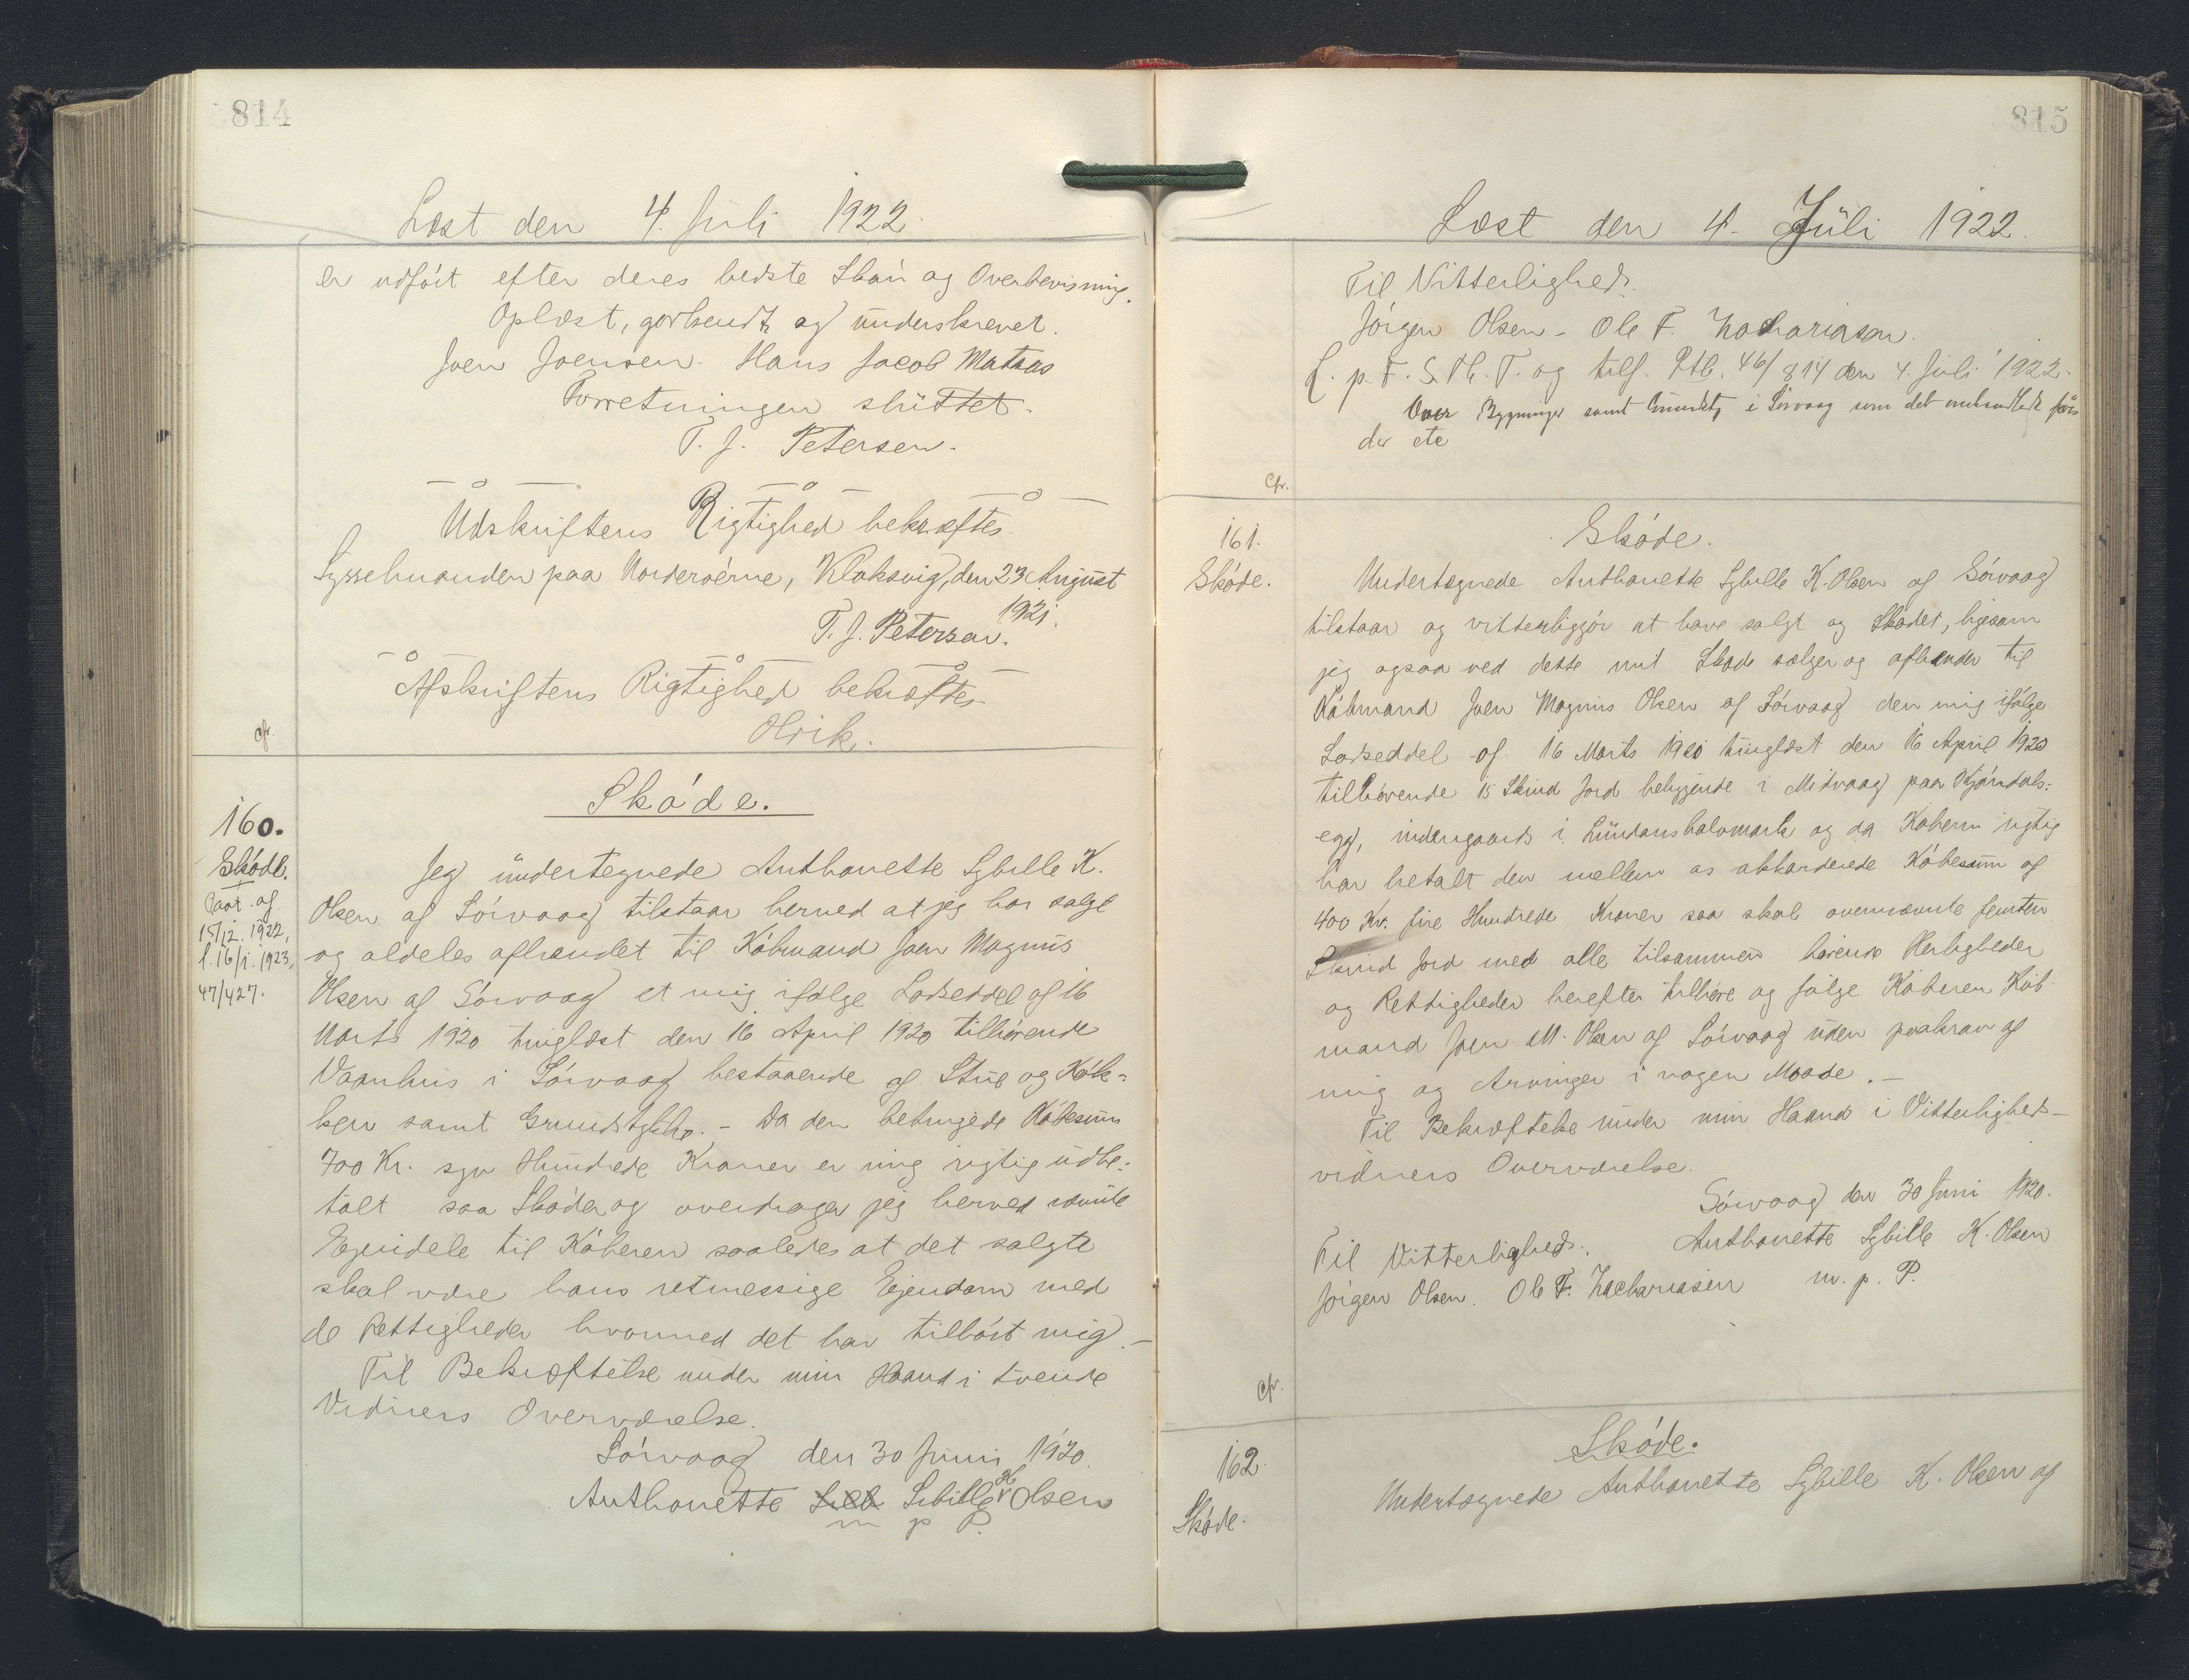 814
Læst den 4. Juli 1922.
er udført efter deres bedste Skøn og Overbevisning.
Oplæst, godkendt og underskrevet.
Joen Joensen. Hans Jacob Matras
Forretningen sluttet.
T. J. Petersen.
Udskriftens Rigtighed bekræftes.
Sysselmanden paa Norderøerne, Klaksvig, den 23 August
1921.
T. J. Petersen.
Afskriftens Rigtighed bekræftes
Olrik.
cfr.
160.
Skøde.
Skøde.
Paat. af
15/12. 1922,
l. 16/1. 1923,
47/427.
Jeg undertegnede Anthonette Sybille K.
Olsen af Sörvaag tilstaar herved at jeg har solgt
og aldeles afhændet til Købmand Joen Magnus
Olsen af Sörvaag et mig ifølge Lodseddel af 16
Marts 1920 tinglæst den 16 April 1920 tilhørende
Vaanhus i Sörvaag bestaaende af Stue og Køk-
ken samt Grundstykke. - Da den betingede Købesum
700 Kr. syv Hundrede Kroner er mig rigtig udbe-
talt saa Skøder og overdrager jeg herved nævnte
Ejendele til Køberen saaledes at det solgte
skal være hans retmessige Ejendom med
de Rettigheder hvormed det har tilhört mig. -
Til Bekræftelse under min Haand i tvende
Vidners Overværelse.
Sörvaag den 30 Juni 1920.
Anthonette Sibille K Olsen
m p P.
815
Læst den 4. Juli 1922.
Til Vitterlighed.
Jörgen Olsen - Ole F. Zachariasen.
L. p. F. S. Th. T. og tilf. Ptb. 46/814 den 4. Juli 1922.
Over Bygninger samt Grundst. i Sörvaag som det omhandlede
der etc
cfr.
161.
Skøde.
Skøde.
Undertegnede Anthonette Sybille K. Olsen af Sörvaag
tilstaar og vitterliggör at have solgt og Skødet, ligesom
jeg ogsaa ved dette mit Skøde sælger og afhænder til
Købmand Joen Magnus Olsen af Sörvaag den mig ifølge
Lodseddel af 16 Marts 1920 tinglæst den 16 April 1920
tilhörende 15 Skind Jord beliggende i Midvaag paa
egg, indengaards i Lundanshalvmark og da Køberen rigtig
har betalt den mellem os akkorderede Købesum af
400 Kr. fire Hundrede Kroner saa skal ovennævnte femten
Skind Jord med alle tilsammen hörende Herligheder
og Rettigheder herefter tilhöre og følge Køberen Køb
mand Joen M. Olsen af Sörvaag uden paakrav af
mig og Arvinger i nogen Maade. -
Til Bekræftelse under min Haand i Vitterligheds-
vidners Overværelse.
Sörvaag den 30 Juni 1920.
Til Vitterlighed: Anthonette Sybille K. Olsen
Jörgen Olsen. Ole F. Zachariasen m. p. P.
cfr.
162.
Skøde.
Skøde.
Undertegnede Anthonette Sybille K. Olsen af